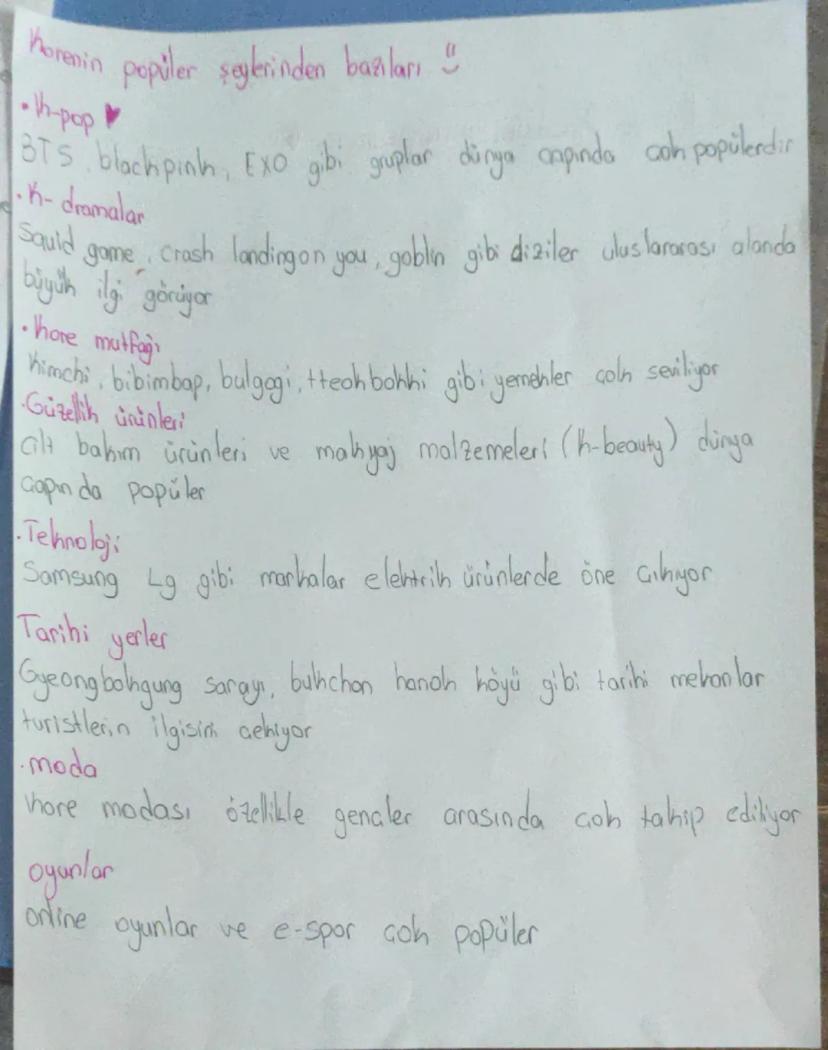 Korenin popüler şeylerinden bazıları ü
• k-pop ♥
BTS, blackpink, EXO gibi gruplar dünya çapında çok popülerdir
• K- dramalar
Squid game, crash landing on you, goblin gibi diziler uluslararası alanda
büyük ilgi görüyor
• kore mutfağı
kimchi, bibimbap, bulgogi, tteokbokki gibi yemekler çok seviliyor
• Güzellik ürünleri
cilt bakım ürünleri ve makyaj malzemeleri (k-beauty) dünya
çapında popüler
• Teknoloji
Samsung Lg gibi markalar elektrik ürünlerde öne çıkıyor
Tarihi yerler
Gyeongbokgung sarayı, bukchon hanok köyü gibi tarihi mekanlar
turistlerin ilgisini çekiyor
• moda
kore modası özellikle gençler arasında çok takip ediliyor
oyunlar
online oyunlar ve e-spor çok popüler